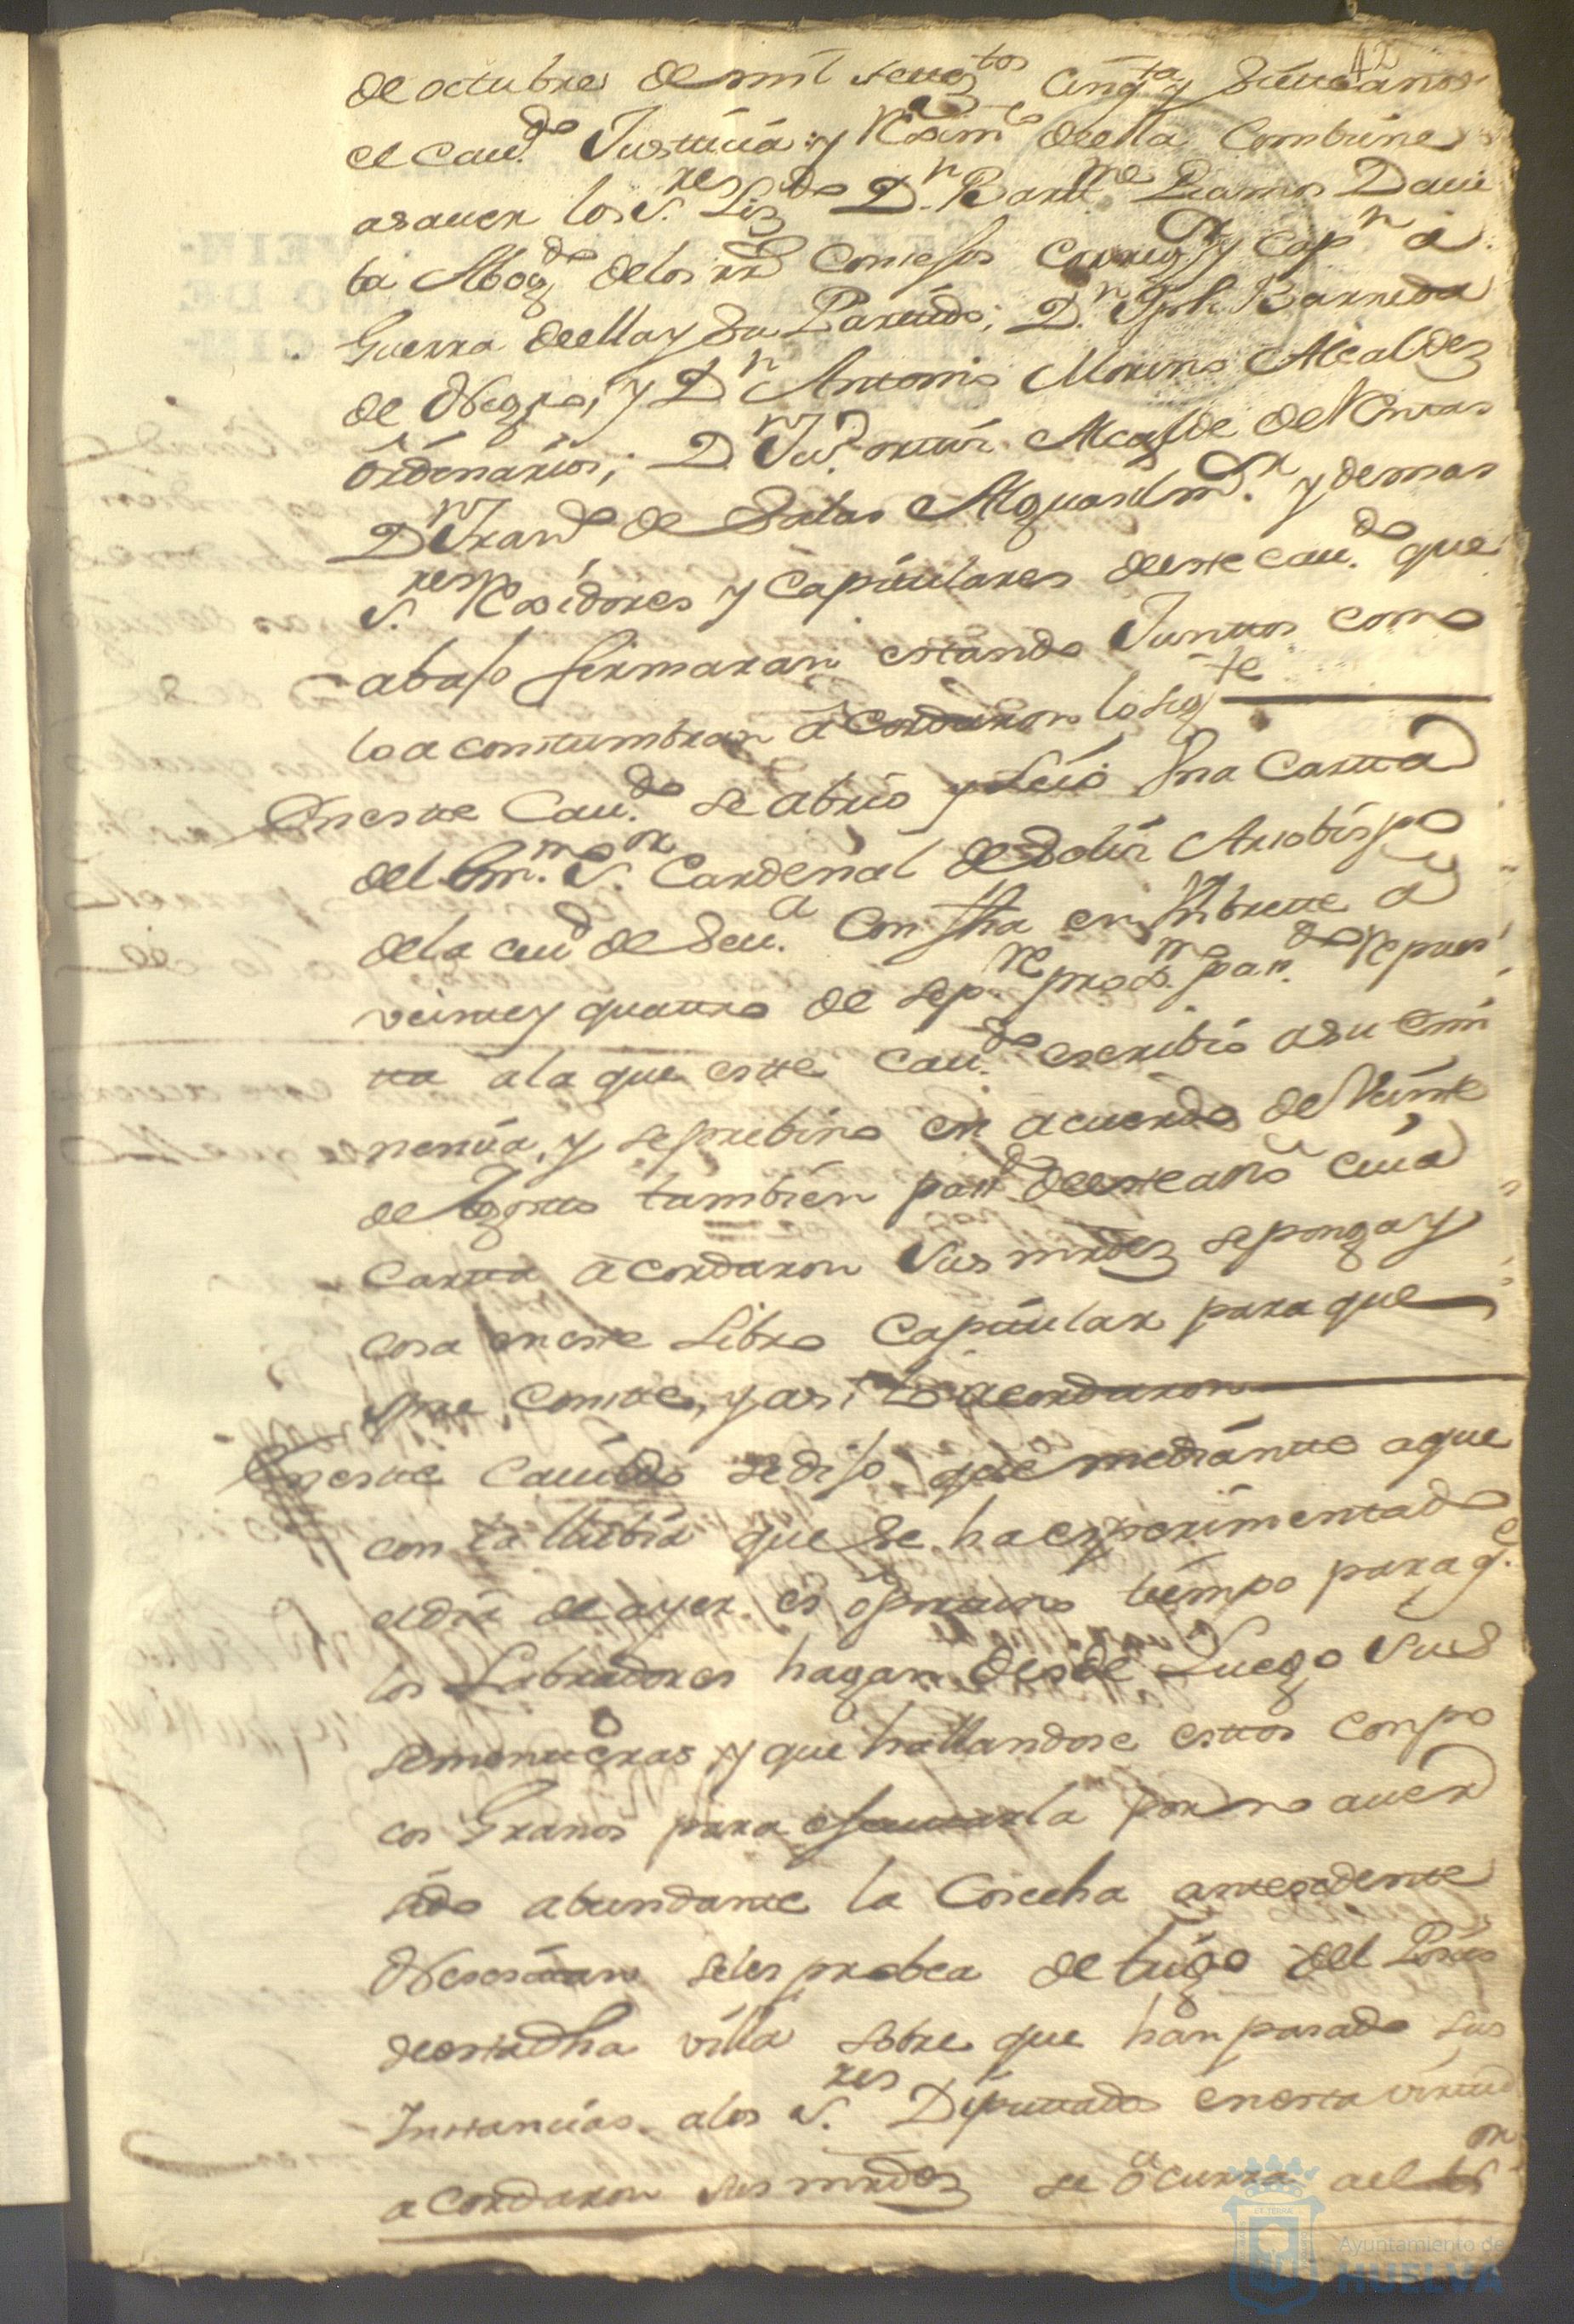 42
de octubre de mil setez.tos Cinq.ta y Siette anos
el Cau.do Justicia y Rexim.to de ella Combine
a sauer los S.res Liz.do D.n Bartt.me Ramos Daui
la Abog.do de los rr.s Consejos Correg.or y Cap.n a
Guerra de ella y Su Partido; D.n Jph. Barreda
de Negro, y D.n Antonio Moreno Alcaldes
Ordenarios; D.n Ju.o ortiz Alcalde de
D.n Fran.do de Salas Alguasil m.or y demas
S.res Rexidores y Capitulares de este Cau.do que
abajo firmaran estando Juntos como
lo a comstumbran acordaron lo sig.te
En este Cau.do se abrio y Leio Una Cartta
del Em.mo S.or Cardenal de Solis Arzobispo
de la ciu.d de Seu.a Con fha en Vmbrete a
veinte y quattro de Sep.re pro.mo pas.do Repues
tta a la que este Cau.do escribio a su Emi
nencia, y se prebino en acuerdo de Veinte
de Agosto tambien pas.do de este año cuia
Cartta acordaron Sus mrdes se ponga y
cosa en este Libro Capitular para que
spre Conste, y asi lo acordaron
En este Cauildo se dijo que mediante a que
con la llubia que se ha esperimentado
el dia de ayer es oportuno tiempo para q.e
los Labradores hagan desde Luego Sus
sementeras y que hallandose estos con po
cos Granos para efectuarla por no auer
sido abundante la Cosecha antesedente
Nesesitan se les probea de trigo del Posito
de esta dha villa sobre que han pasado sus
Instancias a los S.res Diputtados en esta virtud
acordaron sus mrdes se ocurra al S.or
Ayuntamiento de
HUELVA